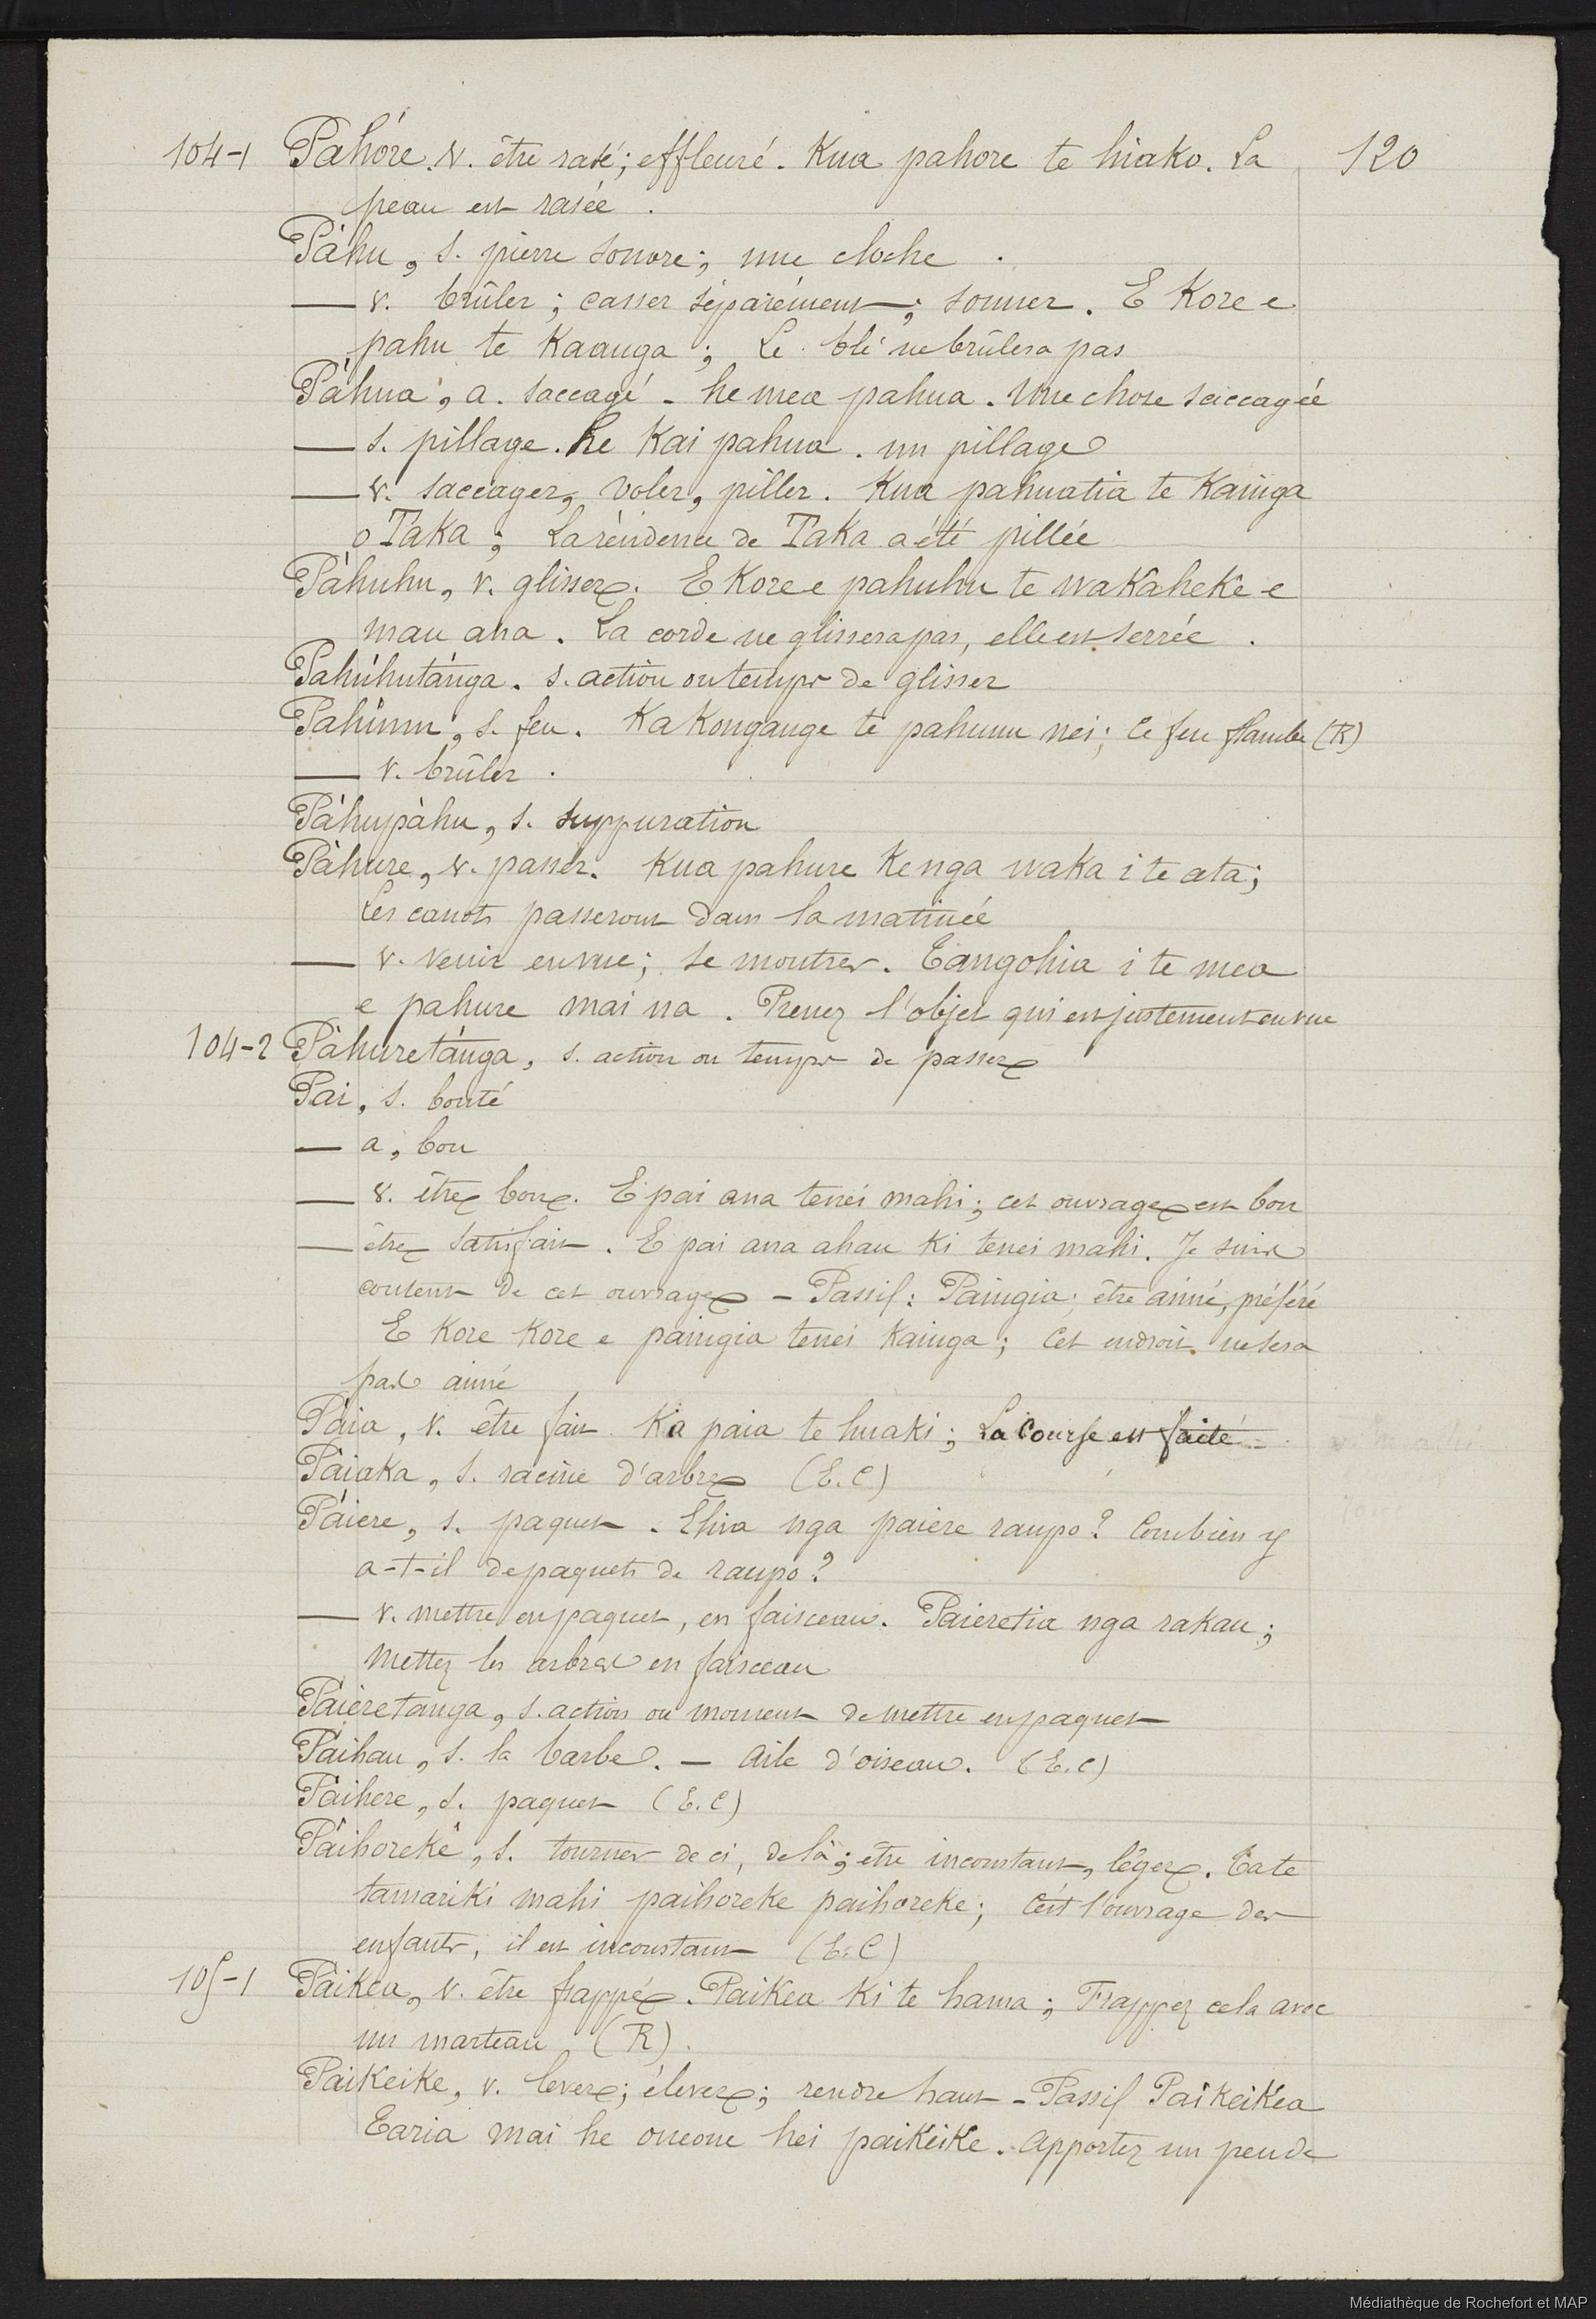 104-1 Pahóre. v. être rasé; effleuré. Kua pahore te hiako. La 120
peau est rasée.
Páhu, s. pierre sonore; une cloche.
— v. brûler; casser séparément; sonner. E Kore e
pahu te Kaanga; Le blé ne brûlera pas
Páhua, a. saccagé - he mea pahua. Une chose saccagée
— s. pillage. he Kai pahua. un pillage
— v. saccager, voler, piller. Kua pahuatia te Kainga
o TaKa; La résidence de TaKa a été pillée
Páhuhu, v. glisser. E Kore e pahuhu te waKaheke e
mau ana. La corde ne glissera pas, elle est serrée.
Pahúhutánga. s. action ou temps de glisser
Pahúnu, s. feu. Ka Kongange te pahunu nei; Ce feu flambe (K)
— v. brûler.
Páhupàhu, s. suppuration
Páhure, v. passer. Kua pahure Ke nga waka i te ata;
Les canots passeront dans la matinée
— v. venir en vue; se montrer. Tangohia i te mea
e pahure mai na. Prenez l'objet qui est justement en vue
104-2 Páhuretánga, s. action ou temps de passer
Pai, s. bonté
— a, bon
— v. être bon. E pai ana tenei mahi; cet ouvrage est bon
— être satisfait. E pai ana ahau Ki tenei mahi. Je suis
content de cet ouvrage - Passif: Paingia; être aimé, préféré
E Kore Kore e paingia tenei Kainga; Cet endroit ne sera
pas aimé
Páia, v. être fait. Ka paia te huaki; La Course est faite
Páiaka, s. racine d'arbre (E.C)
Páiere, s. paquet. Ehia nga paiere raupo? Combien y
a-t-il de paquets de raupo?
— v. mettre en paquet, en faisceau. Paieretia nga rakau;
Mettez les arbres en faisceau
Páieretanga, s. action ou moment de mettre en paquet
Páihau, s. la barbe. — Aile d'oiseau. (E.C)
Páihere, s. paquet (E.C)
Páihoreké, s. tourner de ci, de là; être inconstant, léger. Ta te
tamariki mahi paihoreke paihoreke; C'est l'ouvrage des
enfants, il est inconstant (E.C)
105-1 Páikea, v. être frappé. Paikea Ki te hama; Frappez cela avec
un marteau (R).
PaiKeike, v. lever; élever; rendre haut - Passif PaiKeiKea
Taria mai he oneone hei paiKeiKe. Apportez un peu de
Médiathèque de Rochefort et MAP